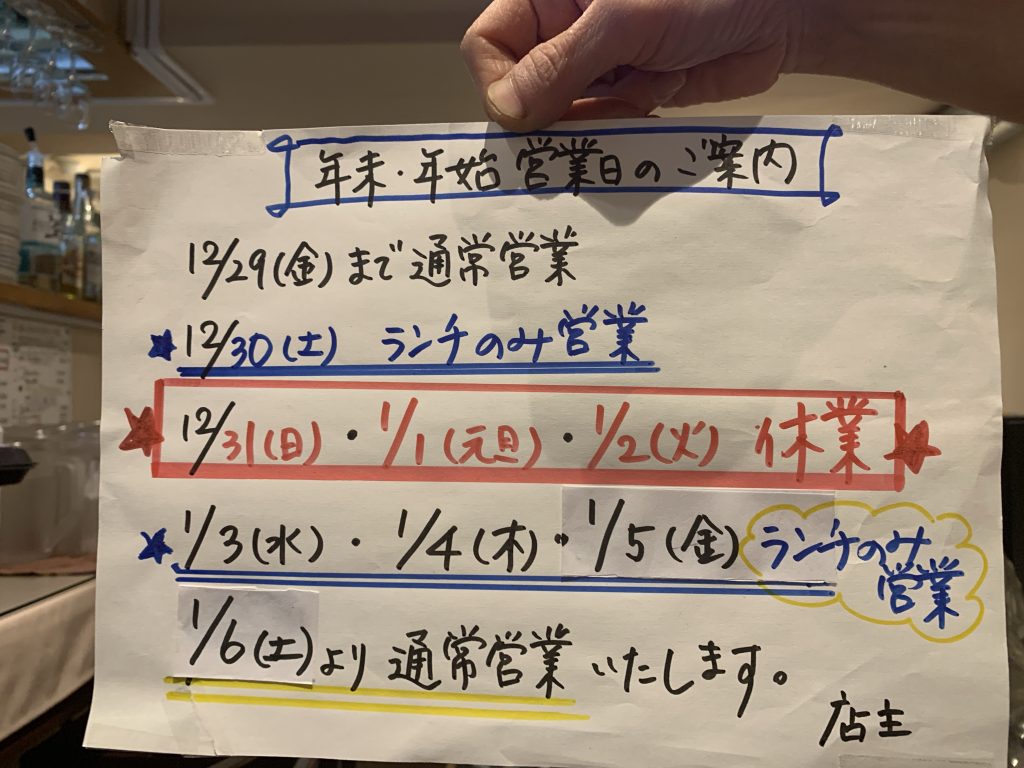 年末・年始 営業日のご案内
12/29(金)まで通常営業
★12/30(土) ランチのみ営業
★12/31(日)・1/1(元旦)・1/2(火) 休業★
★1/3(水)・1/4(木)・1/5(金) ランチのみ
営業
1/6(土)より 通常営業いたします。
店主